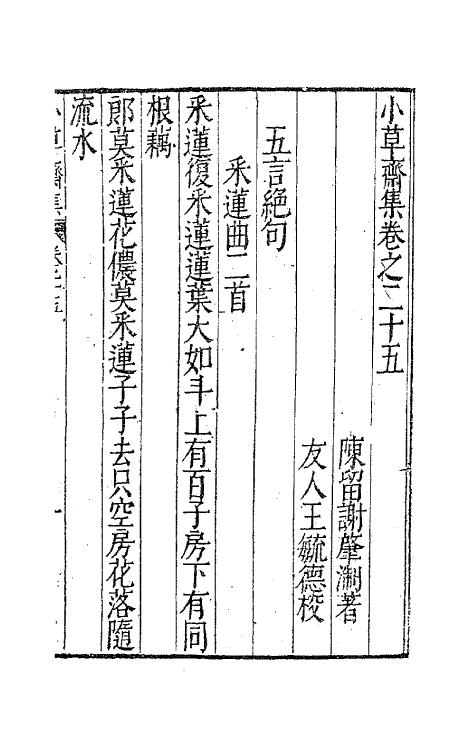 小草齋集卷之二十五
陳留謝肇淛著
友人王毓德校
五言絶句
采蓮曲二首
采蓮復采蓮蓮葉大如斗上有百子房下有同
根藕
郎莫采蓮花儂莫采蓮子子去只空房花落隨
流水
小草齋集